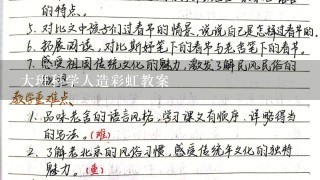 的特点。
5. 对比文中孩子们过春节的情景,说说自己是怎样过春节的。
6. 拓展阅读,对比斯妤笔下的春节与老舍笔下的春节。
7. 感受祖国传统文化的魅力,激发了解民风民俗的
大班科学人造彩虹教案
教学重难点
1. 品味老舍的语言风格,学习课文有顺序、详略得当
的写法。(难)
2. 了解老北京的风俗习惯,感受传统年文化的独特
魅力。(重)